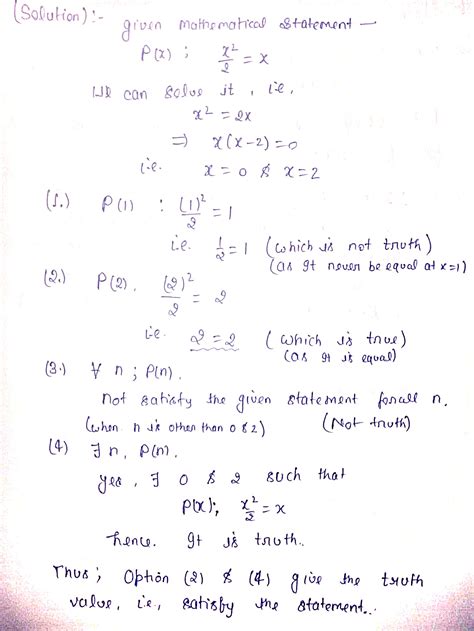 (Solution):-
given mathematical statement —
P(x) ; x²/2 = x
We can solve it, i.e,
x² = 2x
⇒ x(x-2)=0
i.e. x = 0 & x = 2
(1.) P(1) : (1)²/2 = 1
i.e. 1/2 = 1 (which is not truth)
(as It never be equal at x=1)
(2.) P(2), (2)²/2 = 2
i.e. 2 = 2 (which is true)
(as It is equal)
(3.) ∀ n ; P(n).
Not satisfy the given statement for all n.
(when n is other than 0 & 2) (Not truth)
(4) ∃ n, P(n).
yes, ∃ 0 & 2 such that
P(x); x²/2 = x
hence. It is truth..
Thus; Option (2) & (4) give the truth
value, i.e., satisfy the statement..